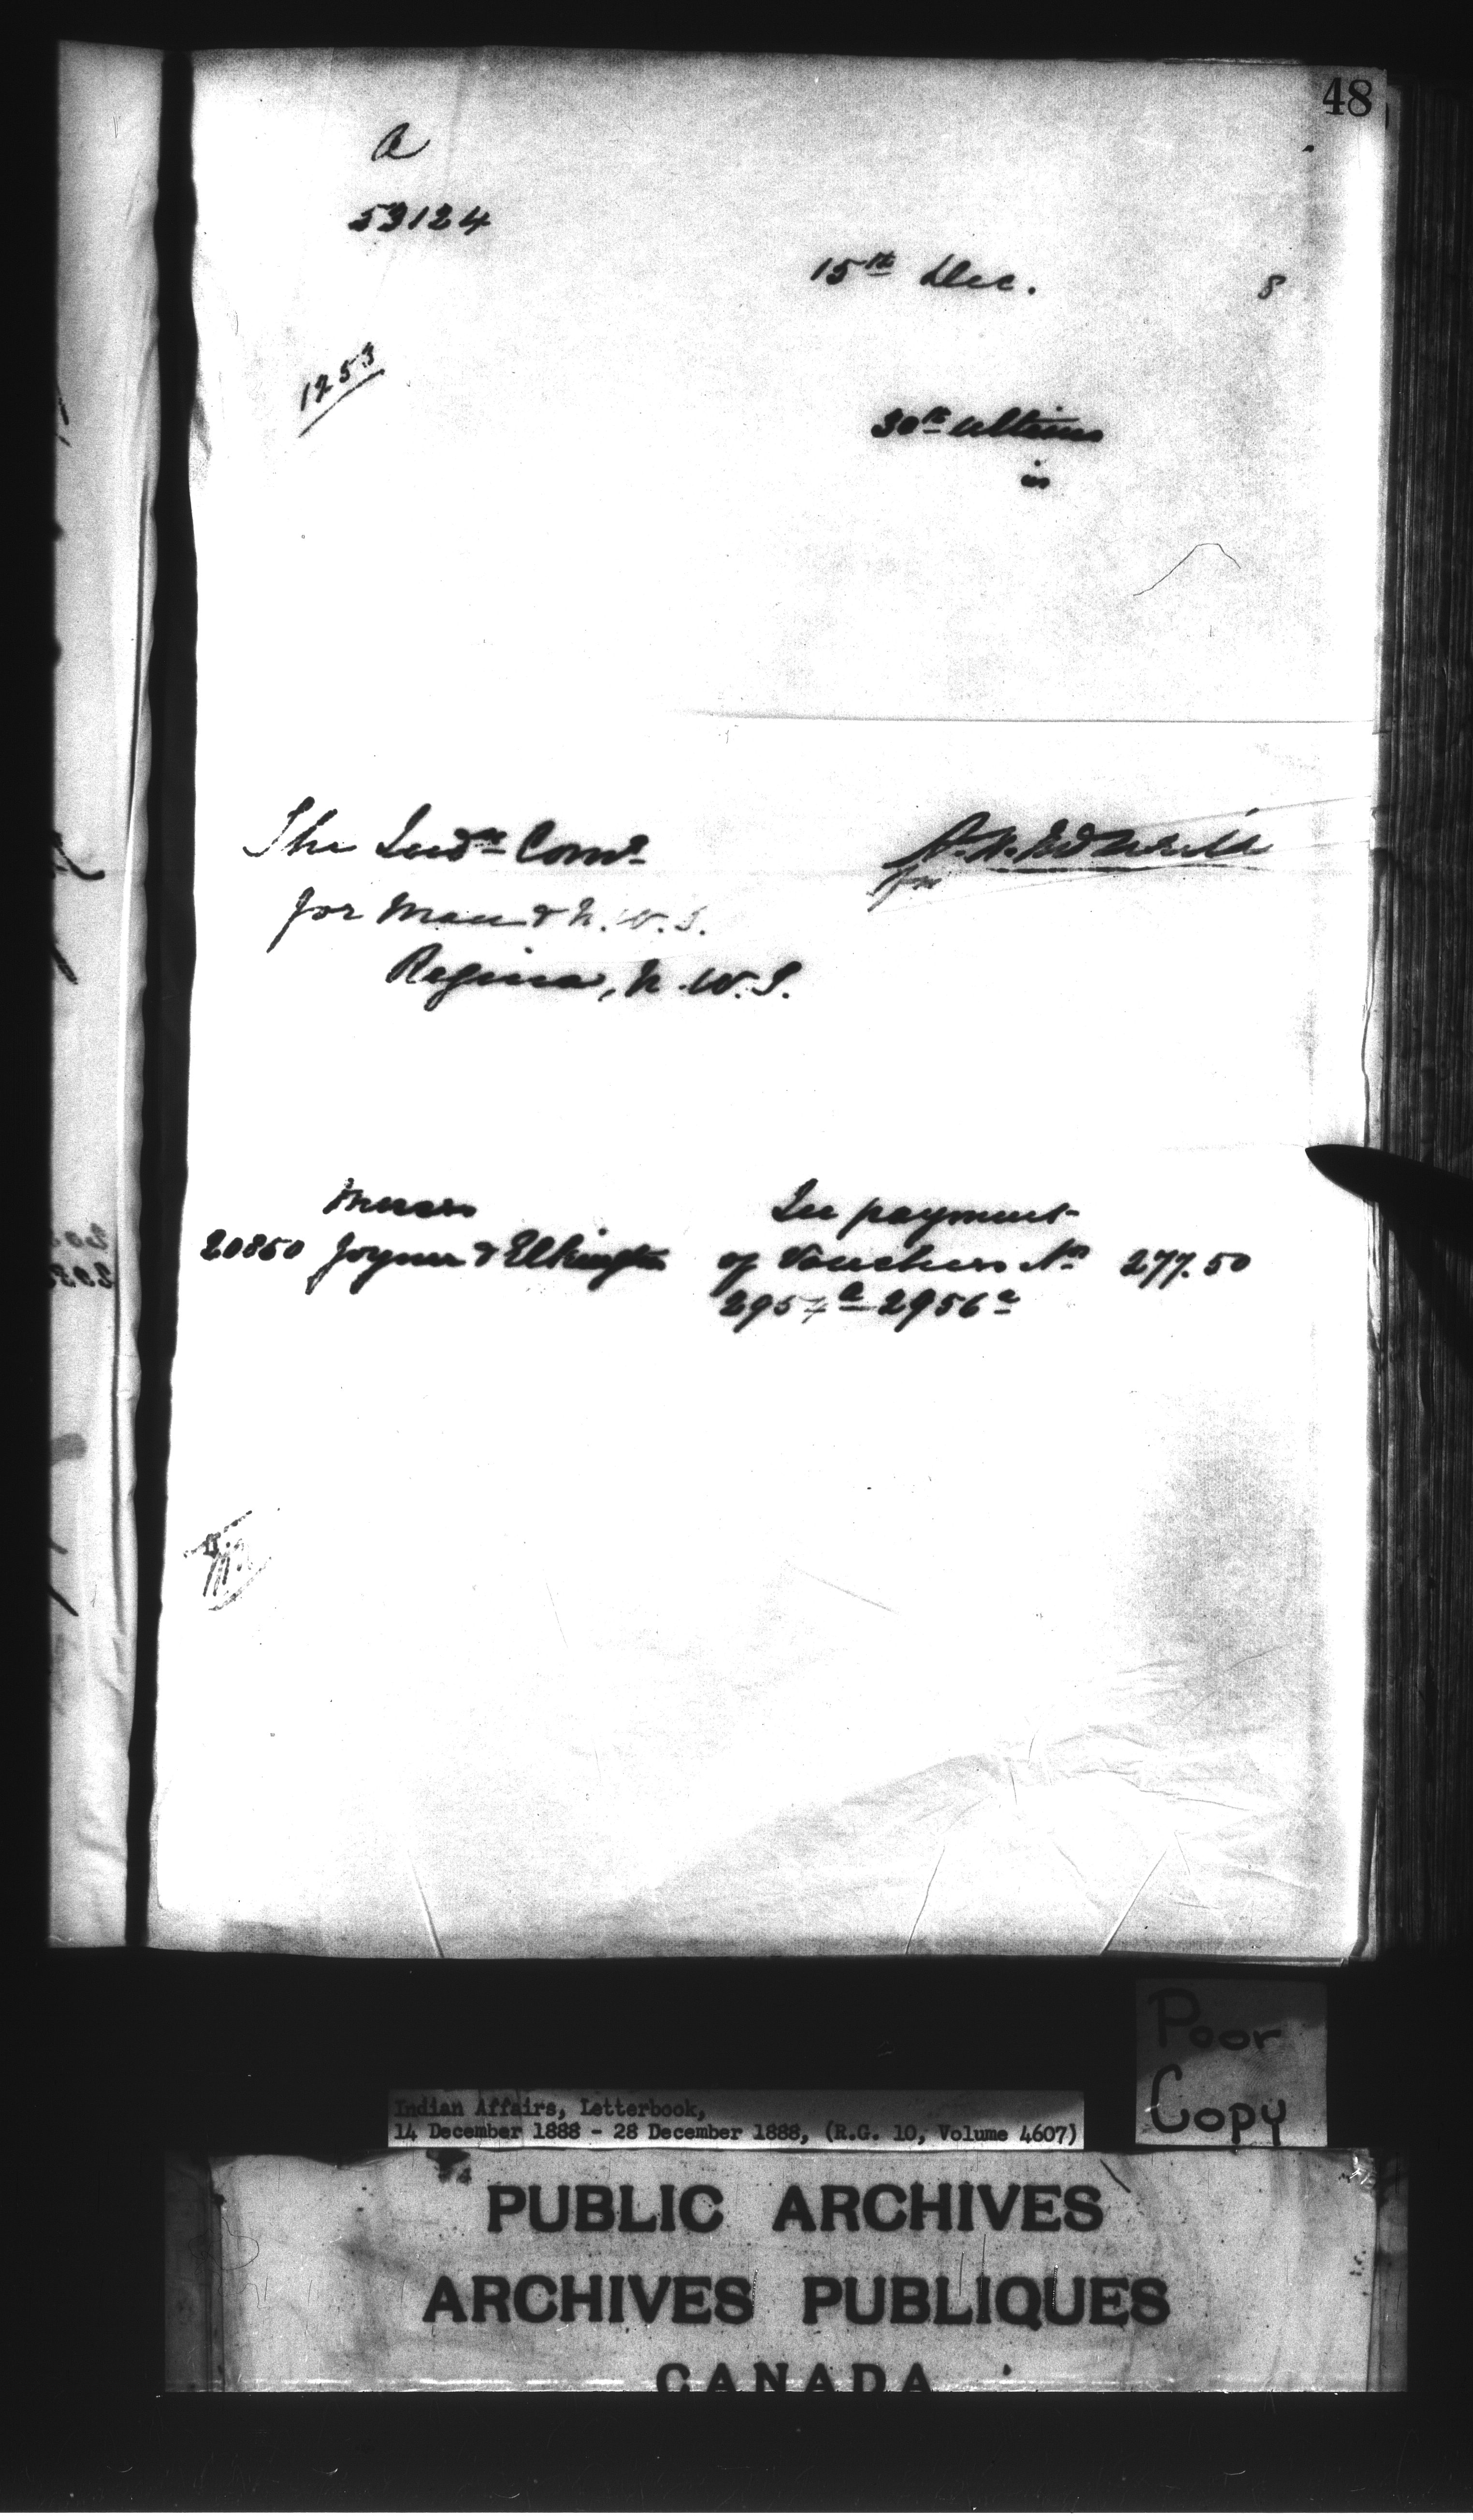 48
A
53124
15th Dec. 8
1253
30th ultimo
in
The Indn Comr
for Man & N.W.T.
Regina, N.W.T.
for
Messrs
20850 Joyner & Elkington
In payment
of Vouchers Nos 277.50
2954c 2956c
Poor
Copy
Indian Affairs, Letterbook,
14 December 1888 - 28 December 1888, (R.G. 10, Volume 4607)
PUBLIC ARCHIVES
ARCHIVES PUBLIQUES
CANADA